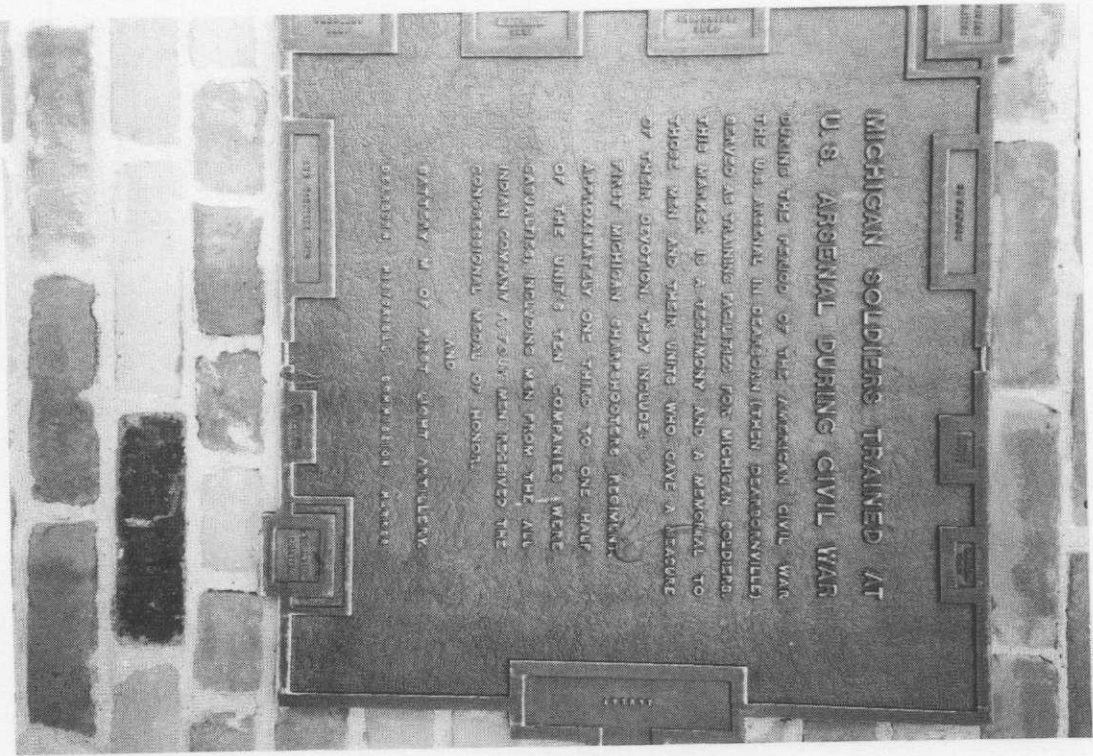 MICHIGAN SOLDIERS TRAINED AT
U.S. ARSENAL DURING CIVIL WAR
DURING THE PERIOD OF THE AMERICAN CIVIL WAR
THE U.S. ARSENAL IN DEARBORN (THEN DEARBORNVILLE)
SERVED AS TRAINING FACILITIES FOR MICHIGAN SOLDIERS.
THIS MARKER IS A TESTIMONY AND A MEMORIAL TO
THOSE MEN AND THEIR UNITS WHO GAVE A MEASURE
OF THEIR DEVOTION. THEY INCLUDE:
FIRST MICHIGAN SHARPSHOOTERS REGIMENT
APPROXIMATELY ONE THIRD TO ONE HALF
OF THE UNIT'S TEN COMPANIES WERE
CASUALTIES, INCLUDING MEN FROM THE ALL
INDIAN COMPANY K. FOUR MEN RECEIVED THE
CONGRESSIONAL MEDAL OF HONOR.
AND
BATTERY M OF FIRST LIGHT ARTILLERY.
DEARBORN HISTORICAL COMMISSION MARKER